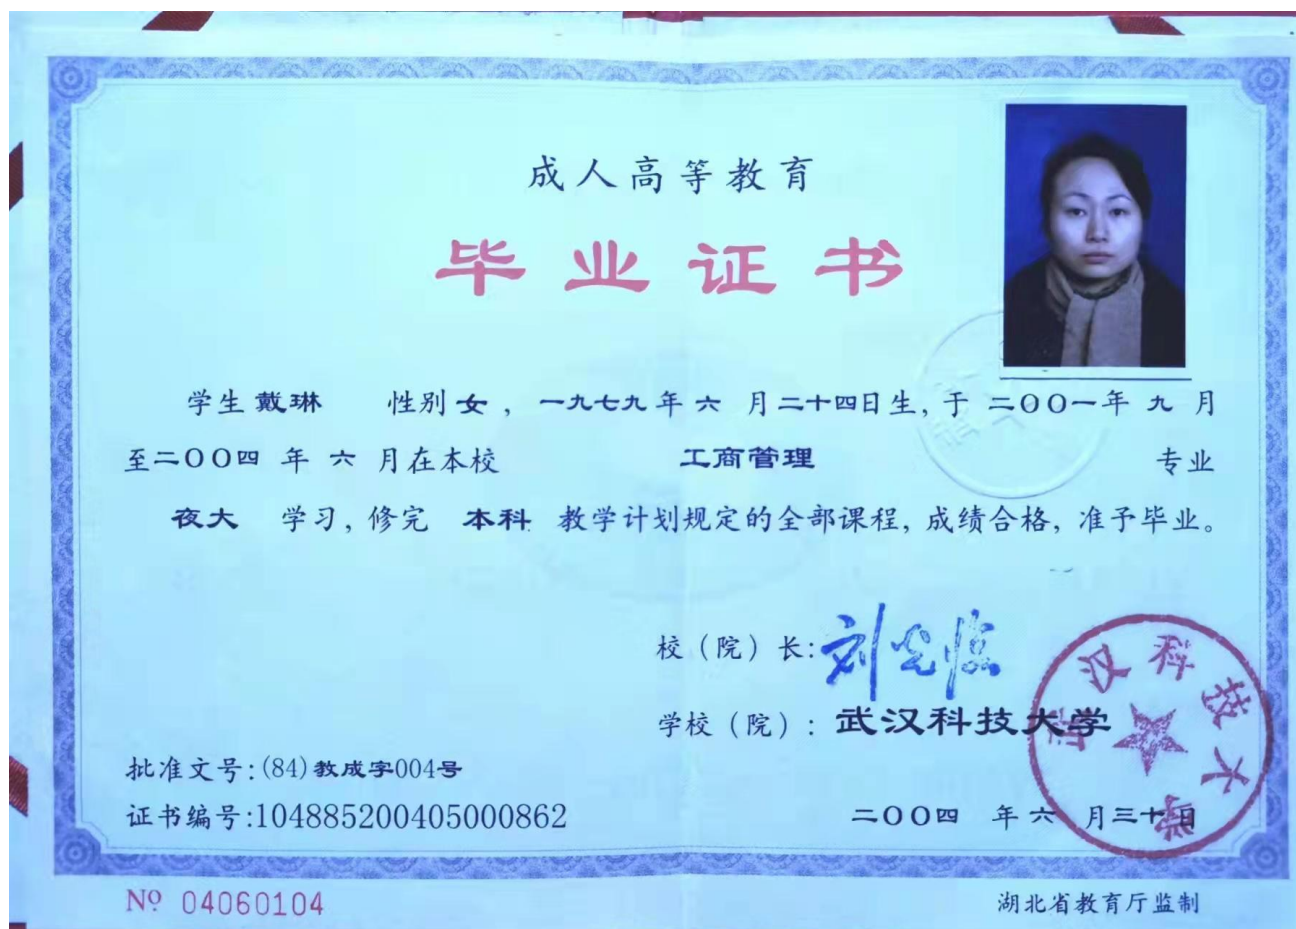 成人高等教育
毕业证书
学生 戴琳 性别 女 , 一九七九 年 六 月 二十四日生, 于 二OO一年 九 月
至二OO四 年 六 月在本校 工商管理 专业
夜大 学习, 修完 本科 教学计划规定的全部课程, 成绩合格, 准予毕业。
校（院）长: 刘光临
学校（院）: 武汉科技大学
武汉科技大学
批准文号: (84) 教成字004号
证书编号:104885200405000862
二OO四 年 六 月三十日
Nº 04060104
湖北省教育厅监制